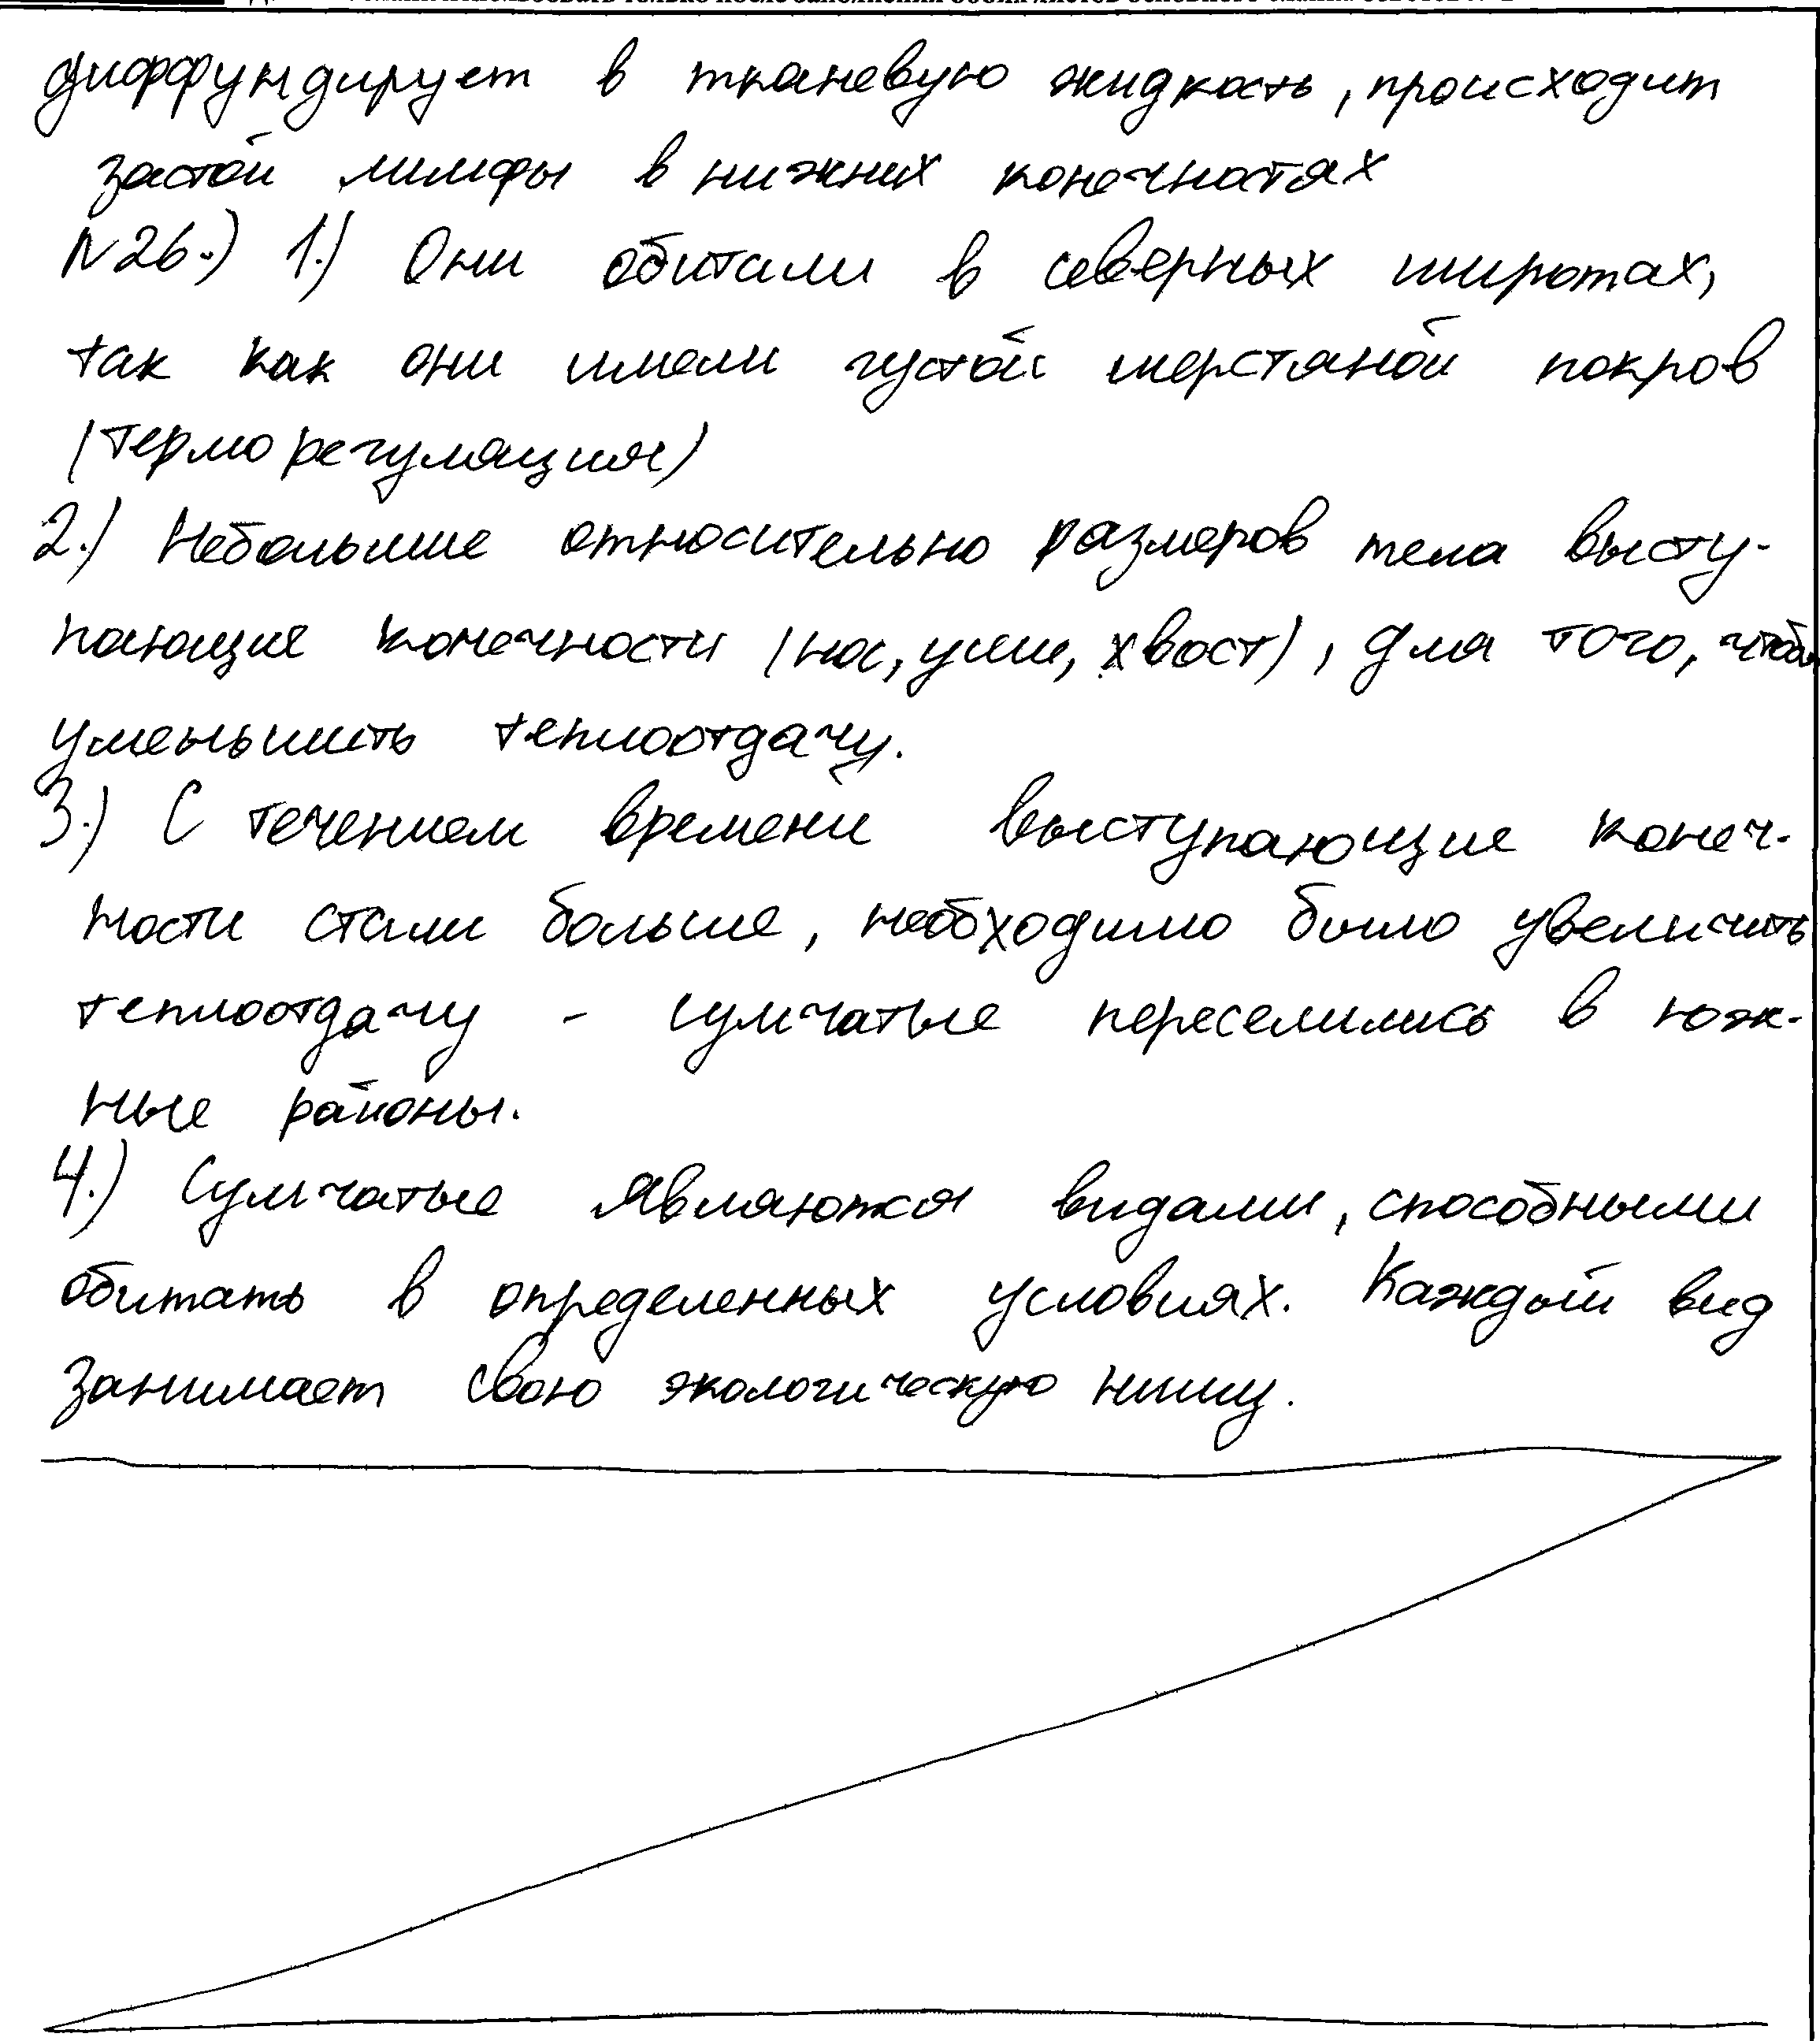 диффундирует в тканевую жидкость, происходит
застой лимфы в нижних конечностях
№26.) 1.) Они обитали в северных широтах,
так как они имели густой шерстяной покров
(терморегуляция)
2.) Небольшие относительно размеров тела высту-
пающие конечности (нос, уши, хвост), для того, чтобы
уменьшить теплоотдачу.
3.) С течением времени выступающие конеч-
ности стали больше, необходимо было увеличить
теплоотдачу - сумчатые переселились в юж-
ные районы.
4.) Сумчатые являются видами, способными
обитать в определенных условиях. Каждый вид
занимает свою экологическую нишу.